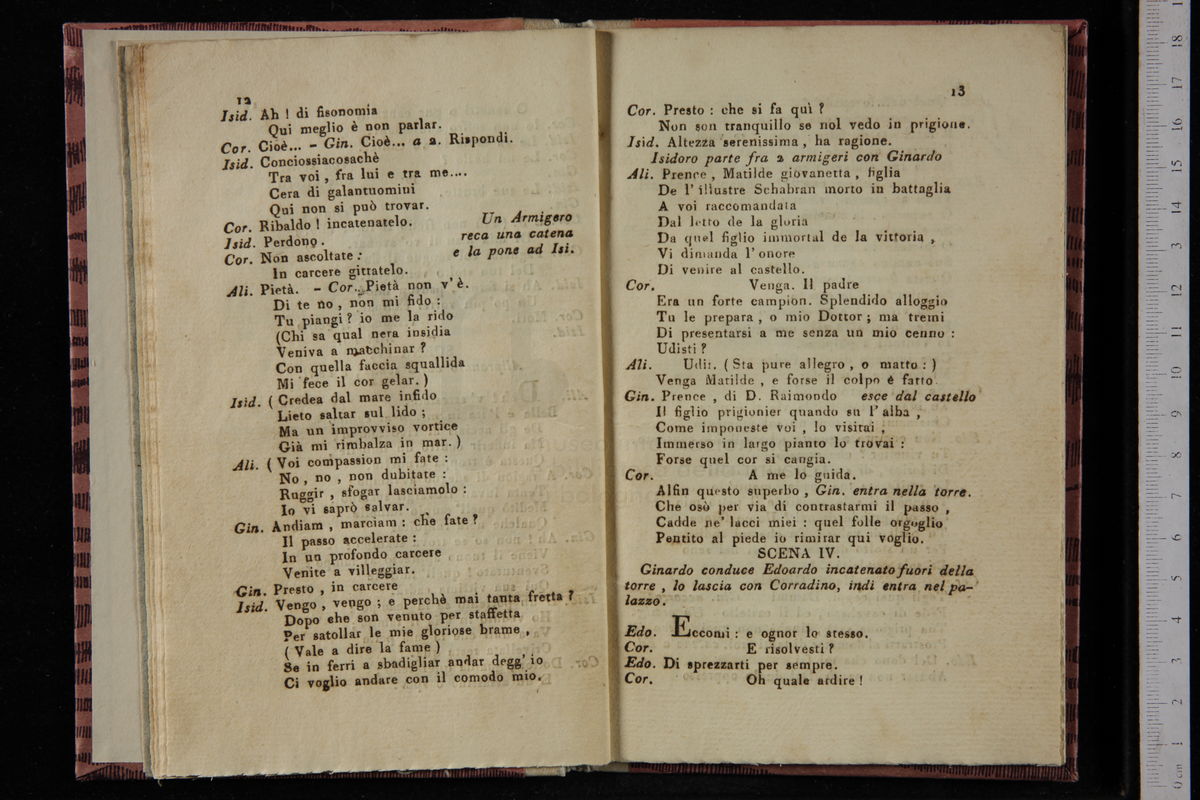 12
Isid. Ah ! di fisonomia
Qui meglio è non parlar.
Cor. Cioè... - Gin. Cioè... a 2. Rispondi.
Isid. Conciossiacosachè
Tra voi , fra lui e tra me....
Cera di galantuomini
Qui non si può trovar.
Cor. Ribaldo ! incatenatelo. Un Armigero
Isid. Perdono. reca una catena
Cor. Non ascoltate : e la pone ad Isi.
In carcere gittatelo.
Ali. Pietà. - Cor. Pietà non v' è.
Di te no , non mi fido :
Tu piangi ? io me la rido
(Chi sa qual nera insidia
Veniva a macchinar ?
Con quella faccia squallida
Mi fece il cor gelar. )
Isid. ( Credea dal mare infido
Lieto saltar sul lido ;
Ma un improvviso vortice
Già mi rimbalza in mar. )
Ali. ( Voi compassion mi fate :
No , no , non dubitate :
Ruggir , sfogar lasciamolo :
Io vi saprò salvar.
Gin. Andiam , marciam : che fate ?
Il passo accelerate :
In un profondo carcere
Venite a villeggiar.
Gin. Presto , in carcere
Isid. Vengo , vengo ; e perchè mai tanta fretta ?
Dopo che son venuto per staffetta
Per satollar le mie gloriose brame ,
( Vale a dire la fame )
Se in ferri a sbadigliar andar degg' io
Ci voglio andare con il comodo mio.
13
Cor. Presto : che si fa quì ?
Non son tranquillo se nol vedo in prigione.
Isid. Altezza serenissima , ha ragione.
Isidoro parte fra 2 armigeri con Ginardo
Ali. Prence , Matilde giovanetta , figlia
De l' illustre Schabran morto in battaglia
A voi raccomandata
Dal letto de la gloria
Da quel figlio immortal de la vittoria ,
Vi dimanda l' onore
Di venire al castello.
Cor. Venga. Il padre
Era un forte campion. Splendido alloggio
Tu le prepara , o mio Dottor ; ma tremi
Di presentarsi a me senza un mio cenno :
Udisti ?
Ali. Udii. ( Sta pure allegro , o matto : )
Venga Matilde , e forse il colpo è fatto.
Gin. Prence , di D. Raimondo esce dal castello
Il figlio prigionier quando su l' alba ,
Come imponeste voi , lo visitai ,
Immerso in largo pianto lo trovai :
Forse quel cor si cangia.
Cor. A me lo guida.
Alfin questo superbo , Gin. entra nella torre.
Che osò per via di contrastarmi il passo ,
Cadde ne' lacci miei : quel folle orgoglio
Pentito al piede io rimirar qui voglio.
SCENA IV.
Ginardo conduce Edoardo incatenato fuori della
torre , lo lascia con Corradino, indi entra nel pa-
lazzo.
Edo. Eccomi : e ognor lo stesso.
Cor. E risolvesti ?
Edo. Di sprezzarti per sempre.
Cor. Oh quale ardire !
0 cm 1 2 3 4 5 6 7 8 9 10 11 12 13 14 15 16 17 18